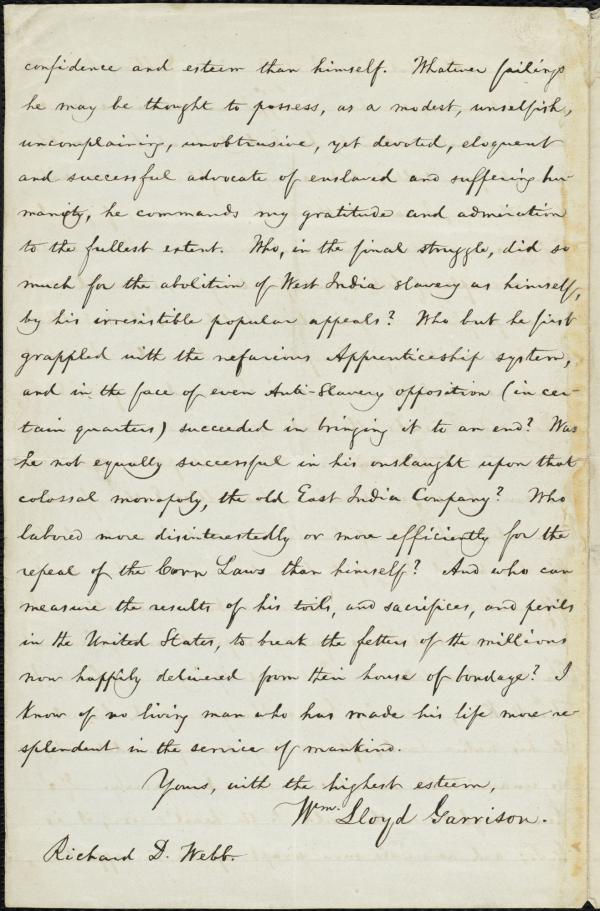 confidence and esteem than himself. Whatever failings
he may be thought to possess, as a modest, unselfish,
uncomplaining, unobtrusive, yet devoted, eloquent
and successful advocate of enslaved and suffering hu-
manity, he commands my gratitude and admiration
to the fullest extent. Who, in the final struggle, did so
much for the abolition of West India slavery as himself,
by his irresistible popular appeals? Who but he first
grappled with the nefarious Apprenticeship system,
and in the face of even Anti-Slavery opposition (in cer-
tain quarters) succeeded in bringing it to an end? Was
he not equally successful in his onslaught upon that
colossal monopoly, the old East India Company? Who
labored more disinterestedly or more efficiently for the
repeal of the Corn Laws than himself? And who can
measure the results of his toils, and sacrifices, and perils
in the United States, to break the fetters of the millions
now happily delivered from their house of bondage? I
know of no living man who has made his life more re-
splendent in the service of mankind.
Yours, with the highest esteem,
Wm. Lloyd Garrison.
Richard D. Webb.